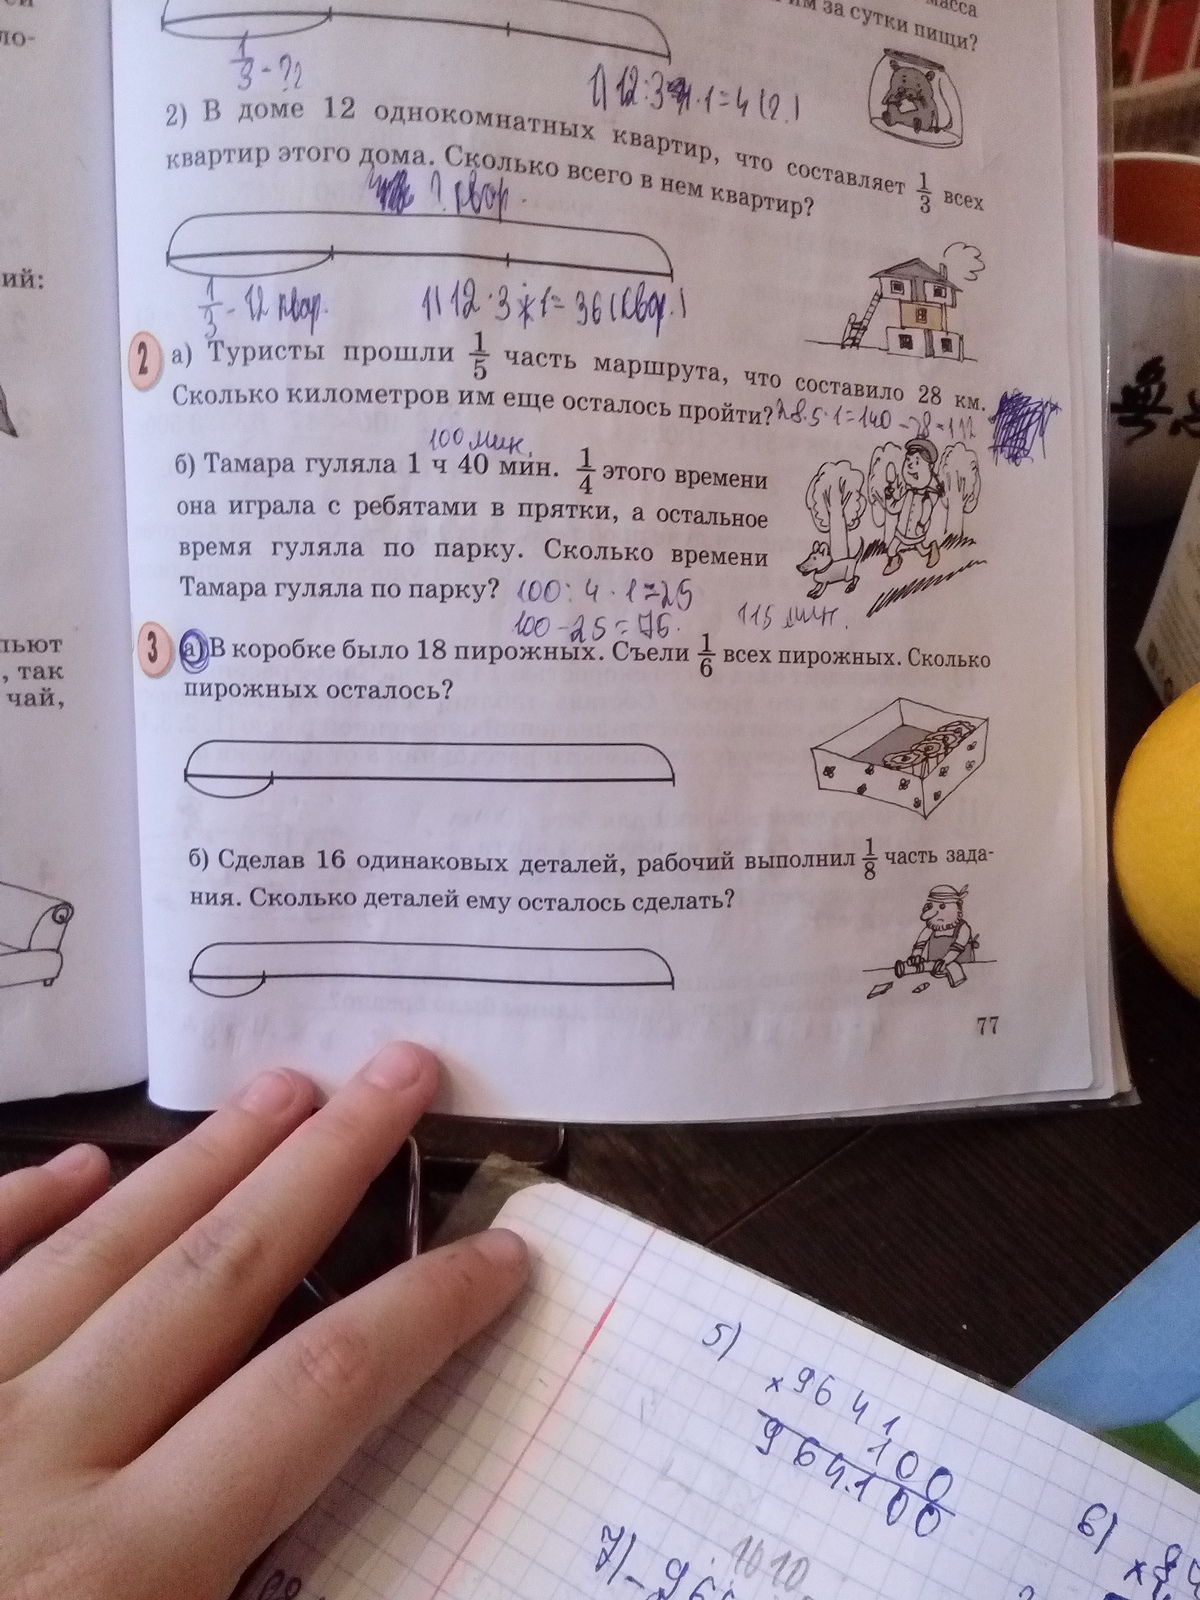 масса
им за сутки пищи?
ло-
1/3 - ?г
1) 12:3·1=4 (г.)
2) В доме 12 однокомнатных квартир, что составляет 1/3 всех
квартир этого дома. Сколько всего в нем квартир?
? квар.
1/3 - 12 квар.
1) 12·3·1=36 (квар.)
ий:
2 а) Туристы прошли 1/5 часть маршрута, что составило 28 км.
Сколько километров им еще осталось пройти? 28·5·1=140-28=112
100 мин.
б) Тамара гуляла 1 ч 40 мин. 1/4 этого времени
она играла с ребятами в прятки, а остальное
время гуляла по парку. Сколько времени
Тамара гуляла по парку? 100:4·1=25
100-25=75.
115 мин.
3 а) В коробке было 18 пирожных. Съели 1/6 всех пирожных. Сколько
пирожных осталось?
пьют
, так
чай,
б) Сделав 16 одинаковых деталей, рабочий выполнил 1/8 часть зада-
ния. Сколько деталей ему осталось сделать?
77
5)
× 9641
100
964100
6)
7)
1010